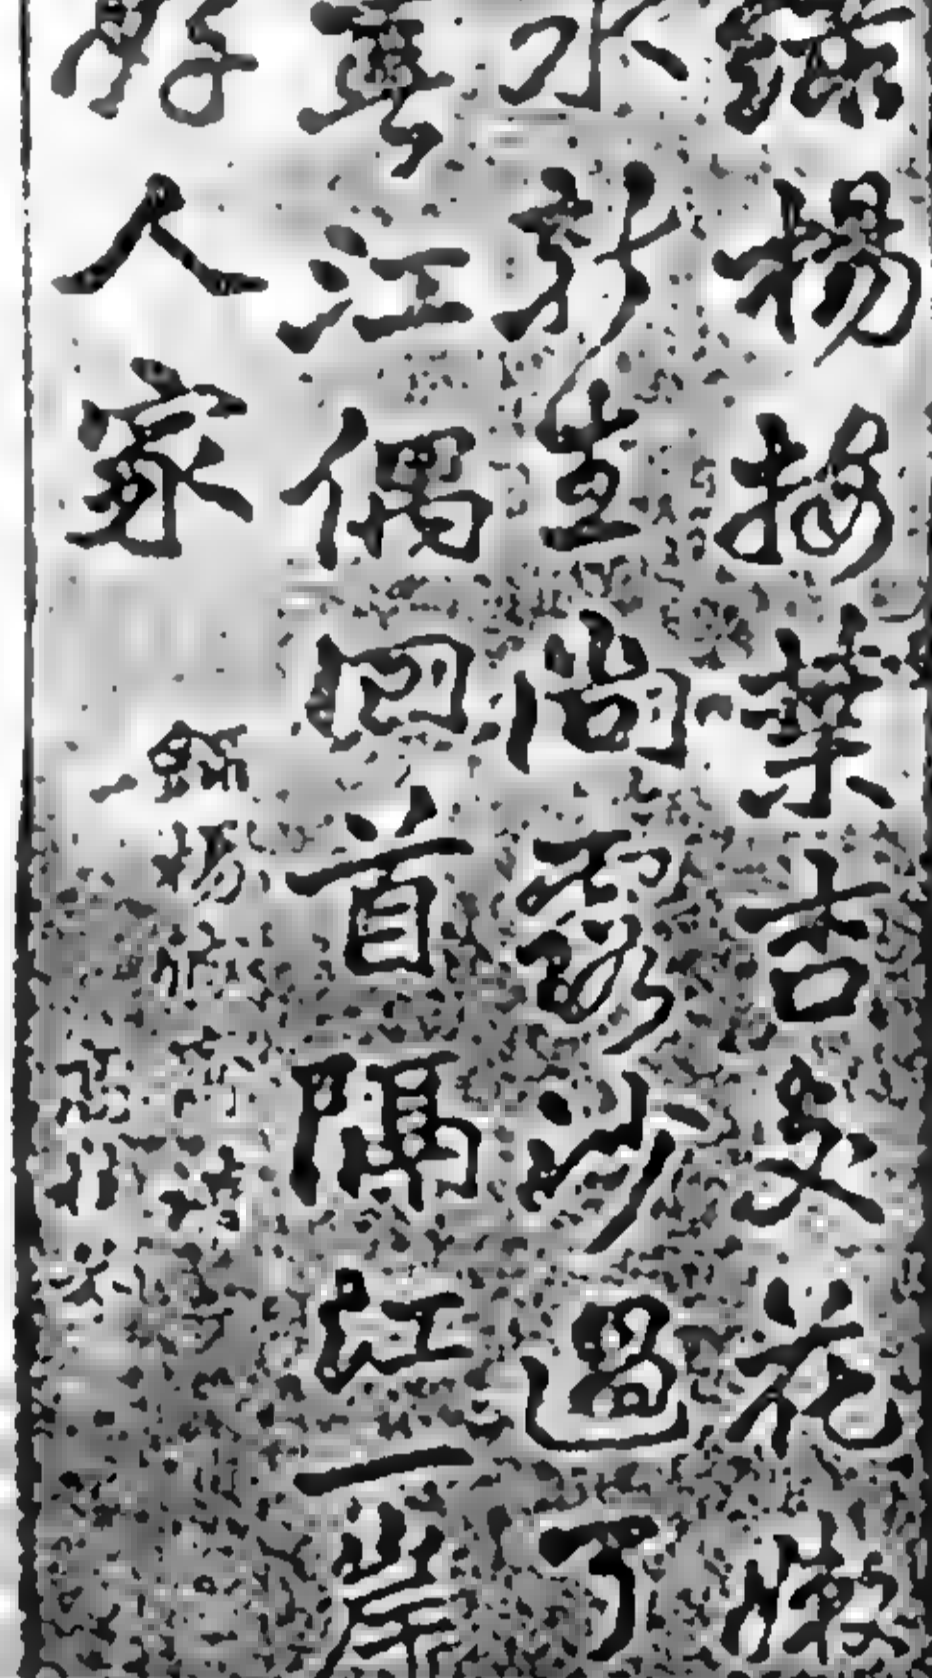 綠楊接葉杏交花嫩
水新生尚露沙過了
春江偶回首隔江一岸
好人家
錄楊